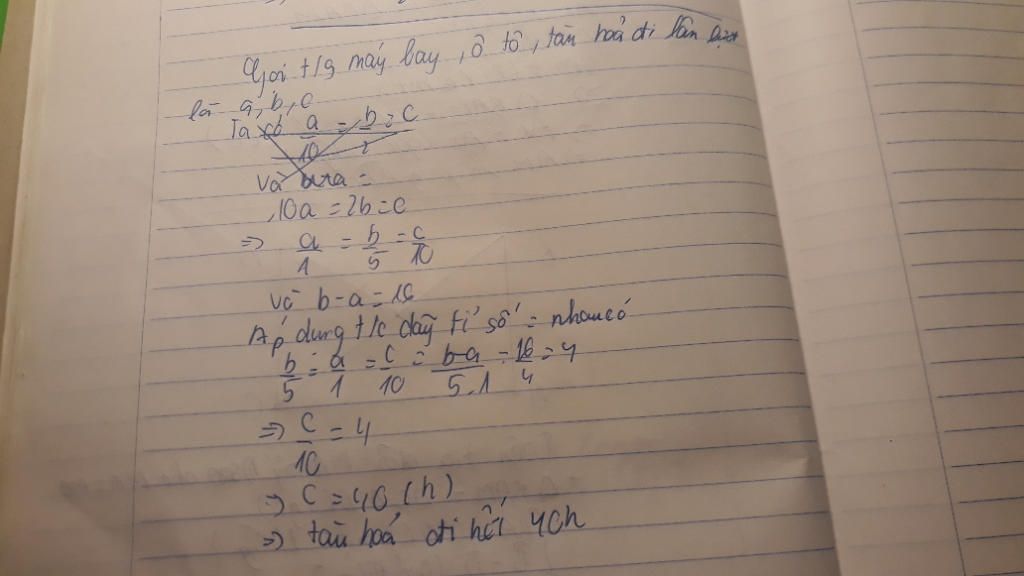 Gọi t/g máy bay, ô tô, tàu hoả đi lần lượt
là a, b, c
Ta có a/10 = b/2 = c
Và b-a =
10a = 2b = c
=> a/1 = b/5 = c/10
Và b-a = 16
Áp dụng t/c dãy tỉ số = nhau có
b/5 = a/1 = c/10 = b-a/5-1 = 16/4 = 4
=> c/10 = 4
=> c = 40 (h)
=> tàu hoả đi hết 40h